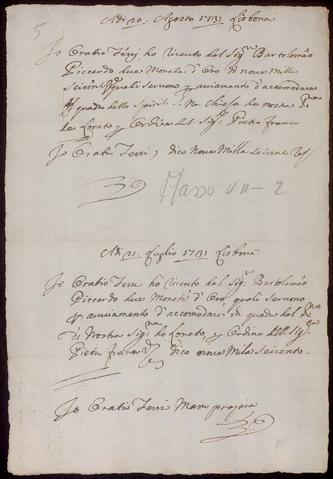 5
Adi 20. Agosto 1731 Lisbona
Io Oratio Terri ho riceuto dal Sig.r Bartolomeo
Piccardo due Monete d'Oro di noue Milla
Seicento quali seruono p auuiamento d'accomodare
quadro dello Spirito Sto Chiesa de nostra
de Loreto p Ordine del Sig.r Pietro Franco
Io Oratio Terri, dico noue Milla Seicento
Maço VII-2
Adi 21. Luglio 1731 Lisbona
Io Oratio Terri ho riceuto dal Sig.r Bartolomeo
Piccardo due Monete d'Oro, quali seruono
p auuiamento d'accomodare quadro
Di Nostra Sig.ra de Loreto, p Ordine Sig.r
Pietro Franco dico noue Mila Seicento
Io Oratio Terri Mano propria